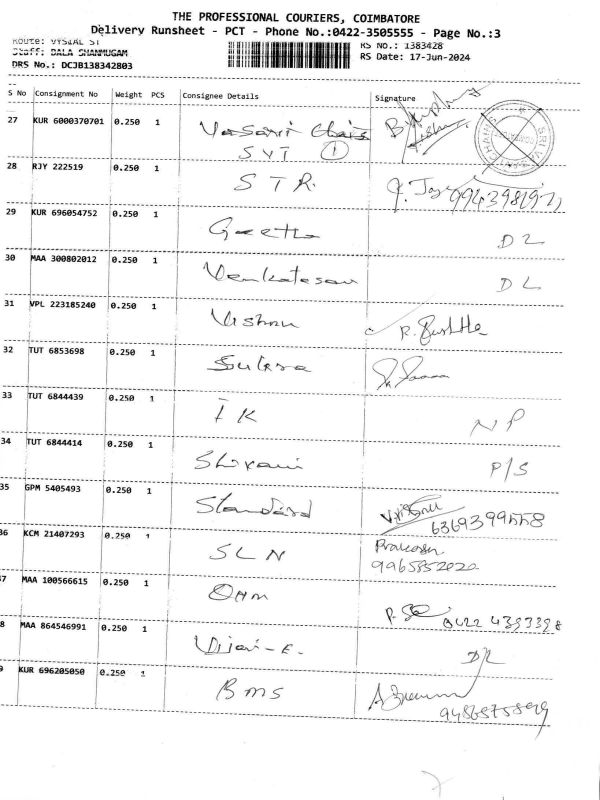 THE PROFESSIONAL COURIERS, COIMBATORE
Delivery Runsheet - PCT - Phone No.:0422-3505555 - Page No.:3
Route: VYSIAL ST
RS No.: 1383428
Staff: BALA SHANMUGAM
RS Date: 17-Jun-2024
DRS No.: DCJB138342803
S No Consignment No Weight PCS Consignee Details Signature
27 KUR 6000370701 0.250 1 Vasavi
SVT 1
28 RJY 222519 0.250 1 STR. 9943981971
29 KUR 696054752 0.250 1 Geetha DL
30 MAA 300802012 0.250 1 Venkatesan DL
31 VPL 223185240 0.250 1 Vishnu R.
32 TUT 6853698 0.250 1
33 TUT 6844439 0.250 1 IK NP
34 TUT 6844414 0.250 1 Shivani P/S
35 GPM 5405493 0.250 1 Standard 6369399558
36 KCM 21407293 0.250 1 SLN Prakash
9965852022
7 MAA 100566615 0.250 1 OHM 0422 4393398
8 MAA 864546991 0.250 1 DL
9 KUR 696205050 0.250 1 BMS